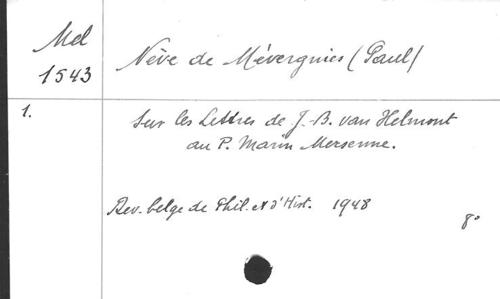 Mel
1543
Nève de Mévergnies (Paul)
1.
Sur les Lettres de J.-B. van Helmont
au P. Marin Mersenne.
Rev. belge de Phil. et d'Hist. 1948
8°